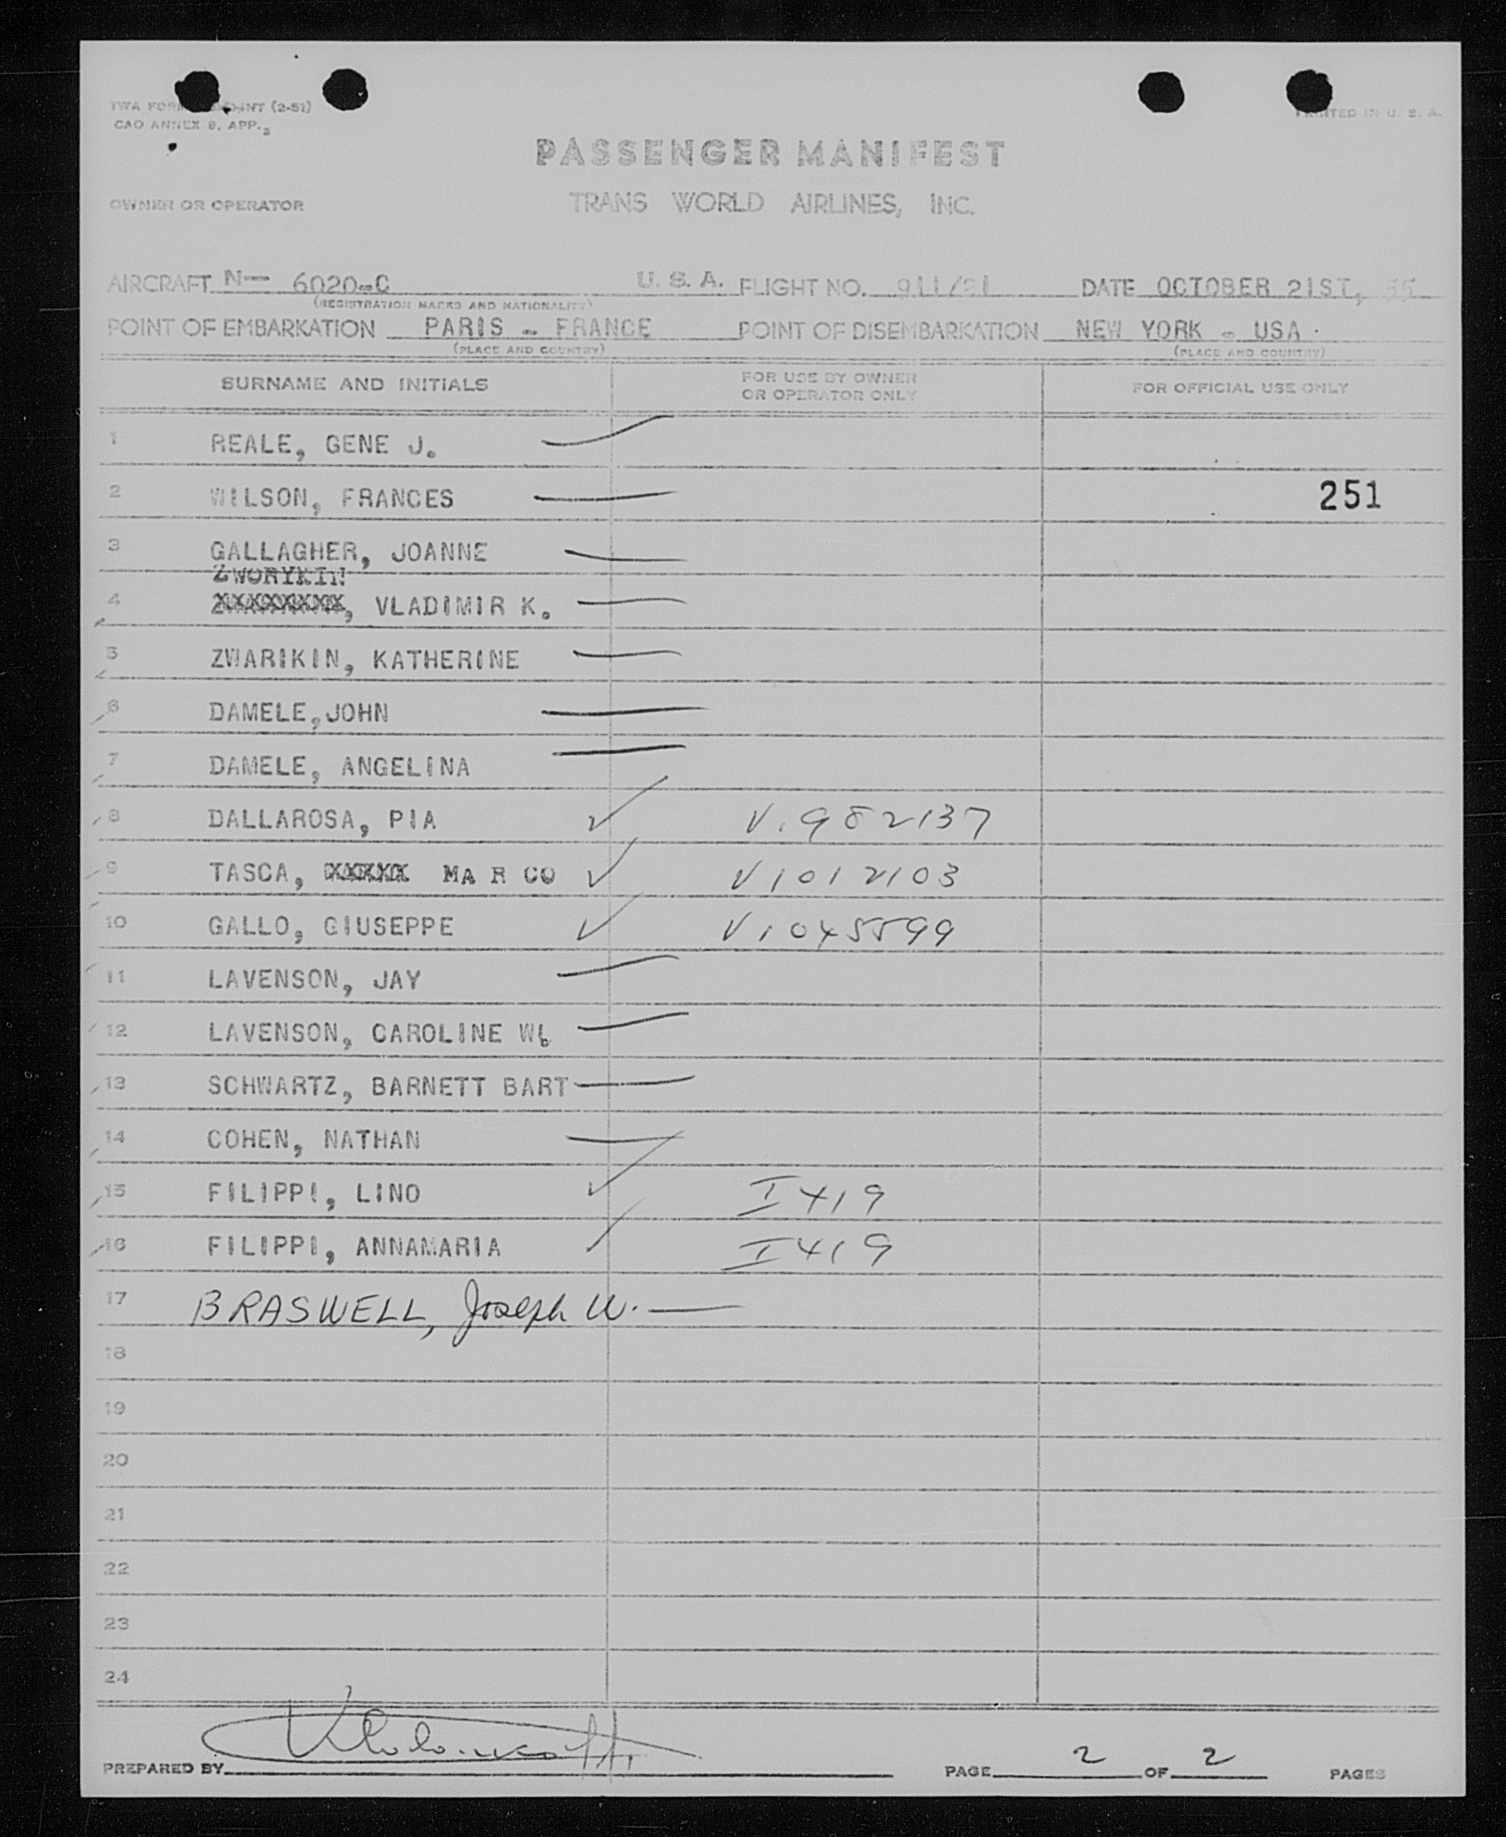 TWA FORM (2-51)
CAO ANNEX 9, APP. 3
PRINTED IN U. S. A.
PASSENGER MANIFEST
OWNER OR OPERATOR TRANS WORLD AIRLINES, INC.
AIRCRAFT N— 6020-C U. S. A. FLIGHT NO. 911/21 DATE OCTOBER 21ST, 55
(REGISTRATION MARKS AND NATIONALITY)
POINT OF EMBARKATION PARIS - FRANCE POINT OF DISEMBARKATION NEW YORK - USA.
(PLACE AND COUNTRY) (PLACE AND COUNTRY)
SURNAME AND INITIALS FOR USE BY OWNER OR OPERATOR ONLY FOR OFFICIAL USE ONLY
1 REALE, GENE J.
2 WILSON, FRANCES 251
3 GALLAGHER, JOANNE
ZWORYKIN
4 XXXXXXXX, VLADIMIR K.
5 ZWARIKIN, KATHERINE
6 DAMELE, JOHN
7 DAMELE, ANGELINA
8 DALLAROSA, PIA ✓ V.982137
9 TASCA, XXXXX MARCO ✓ V1012103
10 GALLO, GIUSEPPE ✓ V1045599
11 LAVENSON, JAY
12 LAVENSON, CAROLINE W.
13 SCHWARTZ, BARNETT BART
14 COHEN, NATHAN
15 FILIPPI, LINO ✓ I419
16 FILIPPI, ANNAMARIA ✓ I419
17 BRASWELL, Joseph W.
18
19
20
21
22
23
24
PREPARED BY PAGE 2 OF 2 PAGES